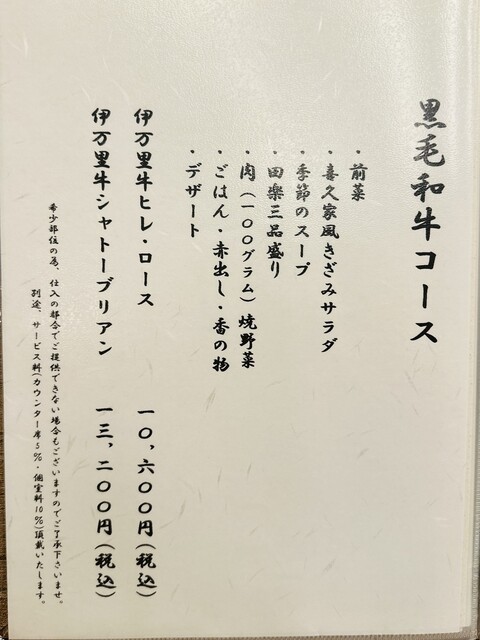 黒毛和牛コース
・前菜
・喜久家風きざみサラダ
・季節のスープ
・田楽三品盛り
・肉(一〇〇グラム)焼野菜
・ごはん・赤出し・香の物
・デザート
伊万里牛ヒレ・ロース 一〇,六〇〇円(税込)
伊万里牛シャトーブリアン 一三,二〇〇円(税込)
希少部位の為、仕入の都合でご提供できない場合もございますのでご了承下さいませ。
別途、サービス料(カウンター席5%・個室料10%)頂戴いたします。